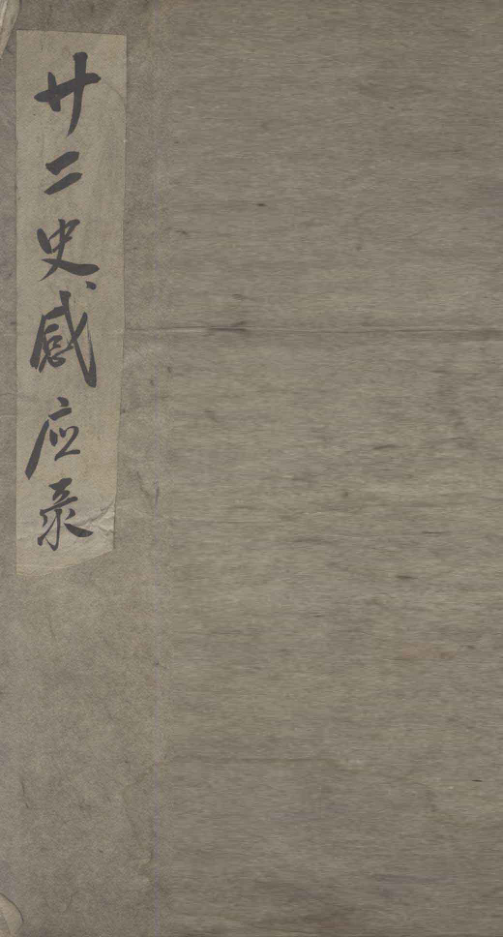 廿二史感应录